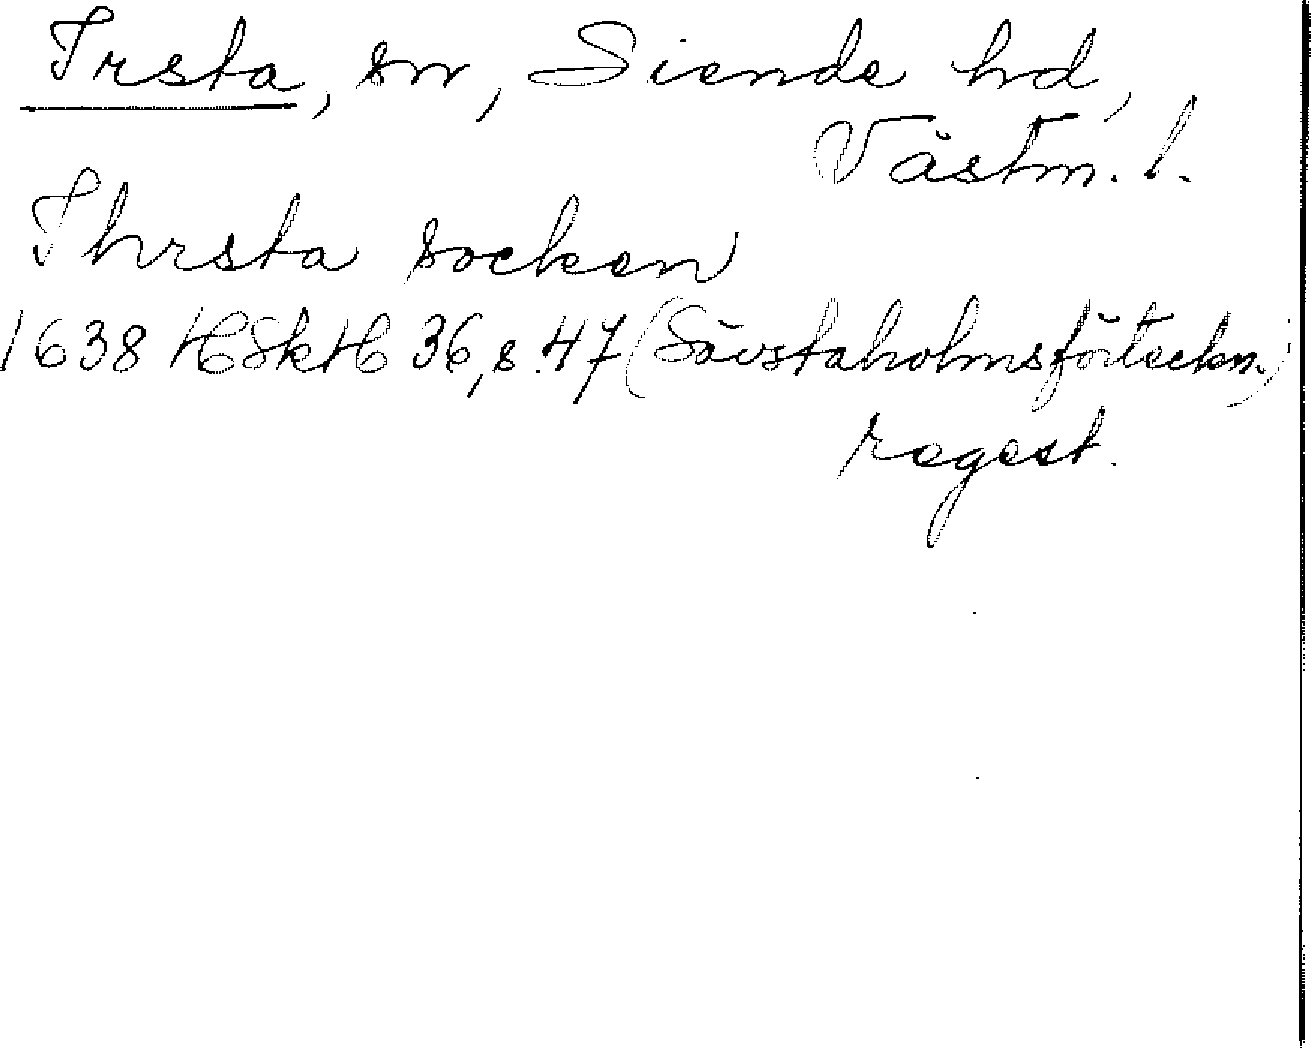 Irsta, sn, Siende hd,
Västm. l.
Ihrsta socken
1638 HSkH 36, s. 47 (Sävstaholmsförteckn.)
regest.